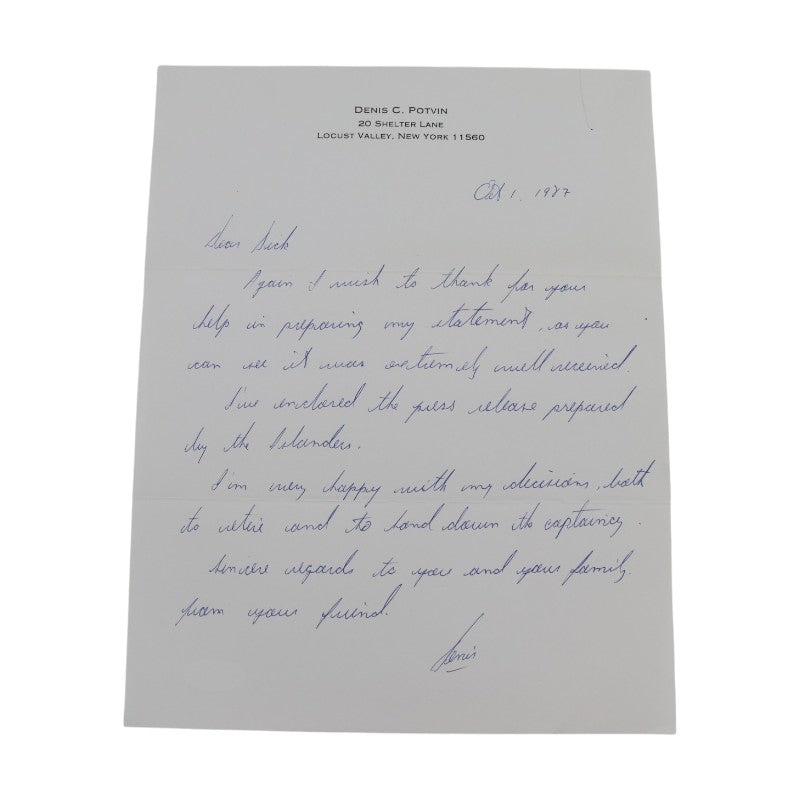 DENIS C. POTVIN
20 SHELTER LANE
LOCUST VALLEY, NEW YORK 11560
Oct 1, 1987
Dear Dick
Again I wish to thank for your
help in preparing my statement, as you
can see it was extremely well received.
I've enclosed the press release prepared
by the Islanders.
I'm very happy with my decisions, both
to retire and to hand down the captaincy.
Sincere regards to you and your family
from your friend.
Denis